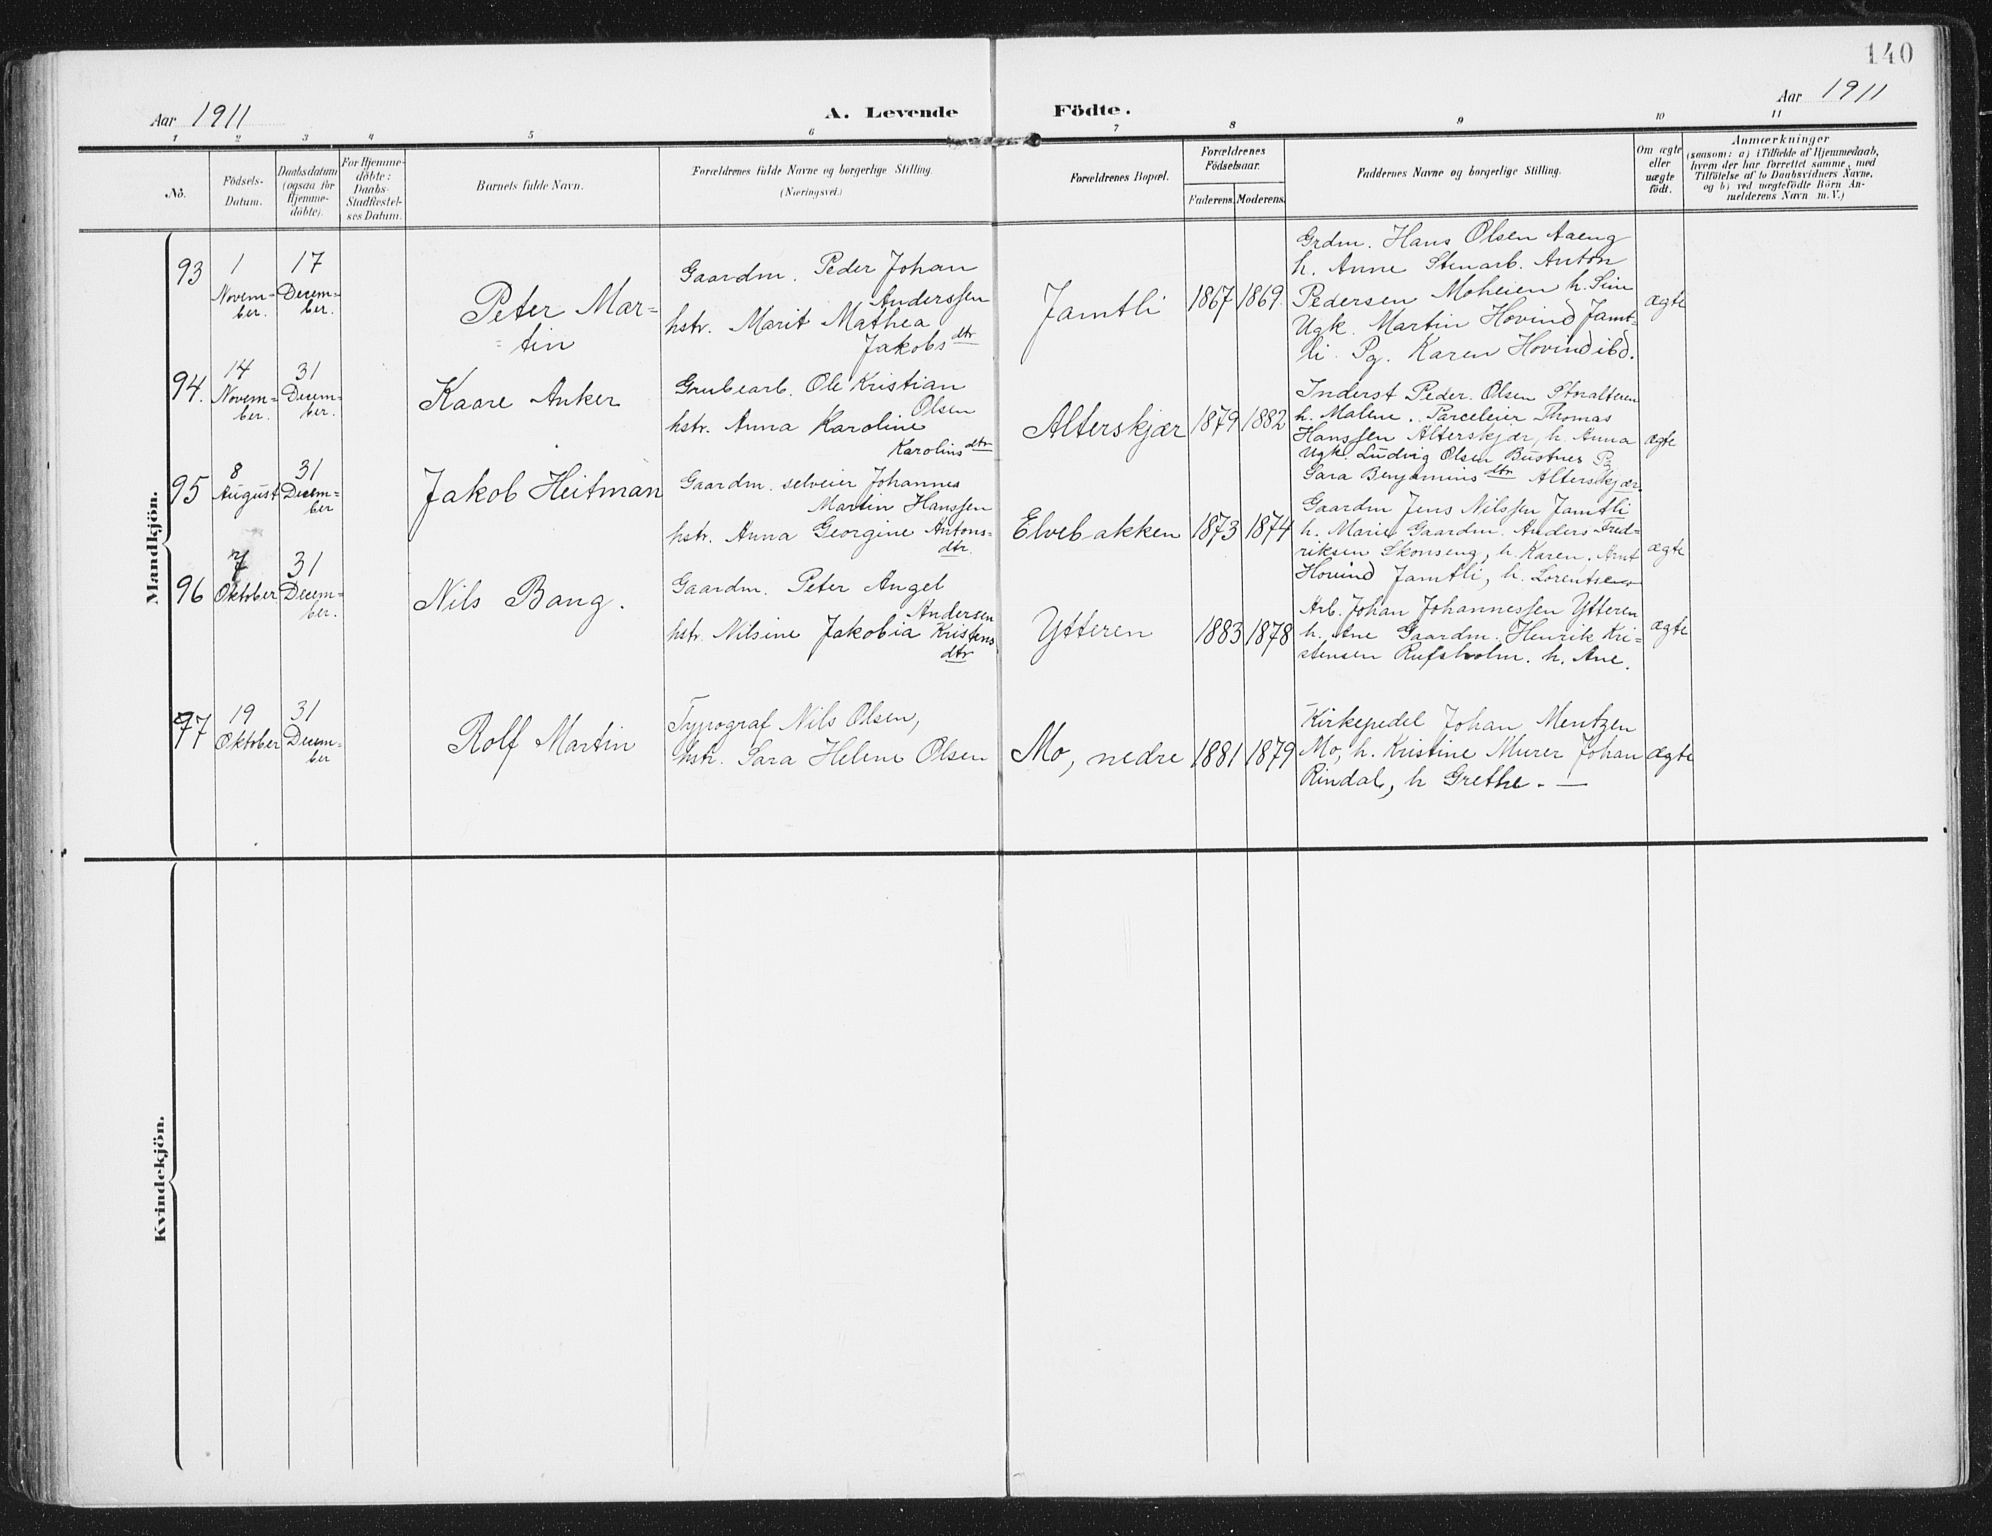 140
Aar 1911
A. Levende Födte.
Aar 1911
1 2 3 4 5 6 7 8 9 10 11
No.
Födsels-
Datum.
Daabsdatum
(ogsaa for
Hjemme-
döbte).
For Hjemme-
döbte:
Daabs-
Stadfæstel-
ses Datum.
Barnets fulde Navn.
Forældrenes fulde Navne og borgerlige Stilling.
(Næringsvei.)
Forældrenes Bopæl.
Forældrenes
Födselsaar.
Faderens. Moderens.
Faddernes Navne og borgerlige Stilling.
Om ægte
eller
uægte
födt.
Anmærkninger
(saasom: a) i Tilfælde af Hjemmedaab,
hvem der har forrettet samme, med
Tilföielse af to Daabsvidners Navne,
og b) ved uægtefödte Börn An-
melderens Navn m. V.)
Mandkjön.
93
1
Novem-
ber.
17
Decem-
ber.
Peter Mar-
tin
Gaardm. Peder Johan
Anderssen
hstr. Marit Mathea
Jakobsdtr
Jamtli
1867 1869.
Grdm. Hans Olsen Aaeng
h. Anne Stenarb. Anton
Pedersen Moheien h. Sim
Ugk. Martin Hovind Jamt-
li. Pg. Karen Hovind ibd.
ægte
94.
14
Novem-
ber.
31
Decem-
ber.
Kaare Anker
Grubearb. Ole Kristian
Olsen
hstr. Anna Karoline
Karolinsdtr
Alterskjær
1879 1882
Inderst Peder Olsen Storalteren
h. Malene. Parceleier Thomas
Hanssen Alterskjær, h. Anna
Ugk. Ludvig Olsen Bustnes Pg
Sara Benjaminsdtr Alterskjær.
ægte
95
8
August
31
Decem-
ber
Jakob Heitman
Gaardm. selveier Johannes
Martin Hanssen
hstr. Anna Georgine Antons-
dtr.
Elvebakken
1873 1874
Gaardm Jens Nilssen Jamtli
h. Marie Gaardm. Anders Fred-
riksen Skonseng, h. Karen. Arnt
Hovind Jamtli, h. Lorentse
ægte
96
7
Oktober
31
Decem-
ber.
Nils Bang.
Gaardm. Peter Angel
Andersen
hstr. Nilsine Jakobia Kristens
dtr
Ytteren
1883 1878
Arb. Johan Johannessen Ytteren
h. Ane Gaardm. Henrik Kri-
stensen Rufsholm. h. Ane.
ægte
97
19
Oktober
31
Decem-
ber
Rolf Martin
Typograf Nils Olsen,
hstr. Sara Helene Olsen
Mo, nedre
1881 1879
Kirkepedel Johan Mentzen
Mo, h. Kristine Murer Johan
Rindal, h Grethe. —
ægte
Kvindekjön.